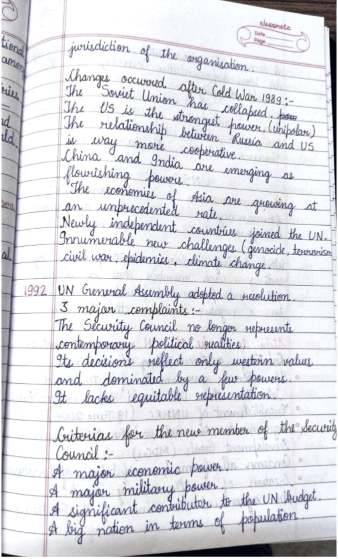 classmate
Date
Page
jurisdiction of the organisation.
Changes occurred after Cold War 1989:-
The Soviet Union has collapsed.
The US is the strongest power. (unipolar)
The relationship between Russia and US
is way more cooperative.
China and India are emerging as
flourishing powers.
The economies of Asia are growing at
an unprecedented rate.
Newly independent countries joined the UN.
Innumerable new challenges (genocide, terrorism
civil war, epidemics, climate change.
1992 UN General Assembly adopted a resolution.
3 major complaints:-
The Security Council no longer represents
contemporary political realities.
Its decisions reflect only western values
and dominated by a few powers.
It lacks equitable representation.
Criterias for the new member of the Security
Council:-
A major economic power.
A major military power.
A significant contributor to the UN budget.
A big nation in terms of population